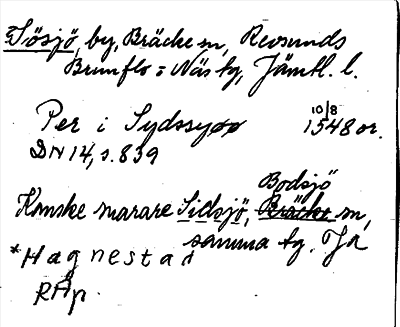 Sösjö, by, Bräcke sn, Revsunds
Brunflo = Näs tg, Jämtl. l.
10/8
Per i Sydsyøø 1548 or.
DN 14, s. 839
Bodsjö
Kanske snarare Sidsjö, Bräcke sn,
samma tg. Ja
*Hagnestad
RÅp.